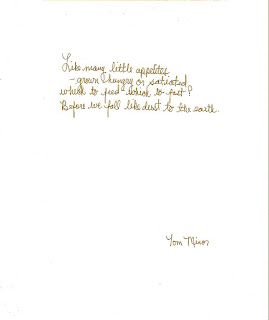 Like many little appetites
- grown hungry or satiated
which to feed which to fast?
Before we fall like dust to the earth.
Tom Minor